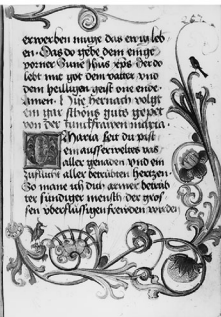 erwerben muge das ewig leb
en. Das do gebe dein einge
porner Sune Jhus xps. Der do
lebt mit got dem vatter vnd
dem heilligen geist one ende
Amen. Die hernach volgt
ein gar schons gutz gepet
von der Junckfrawen maria
Maria seit du pist
ein ausserweltes vas
aller genaden vnd ein
zuflucht aller betrübten hertzen.
So mane ich dich armer betrüb
ter sundiger mensch der gros
sen vberflussigen frewden